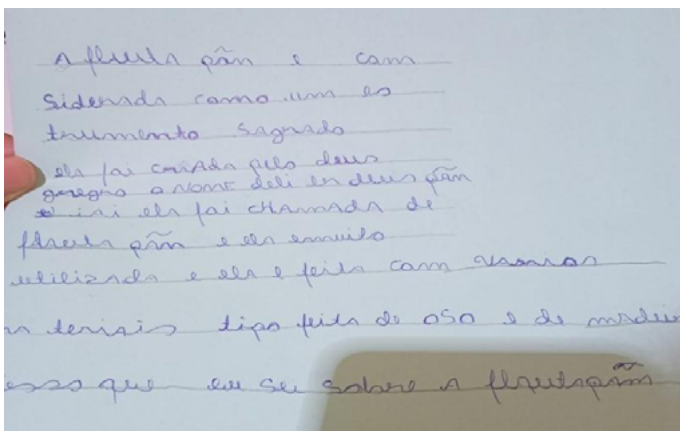 A fluta pãn e cam
siderada como um es
trumento sagrado
ela fai criada pelo deus
garegro o nome deli en deus pãn
e ini ela fai chamada de
flauta pãn e ela emuito
utilizada e ela e feita cam varios
teriais tipo feita de oso e de madei
esso que eu se sobre a flautapãm